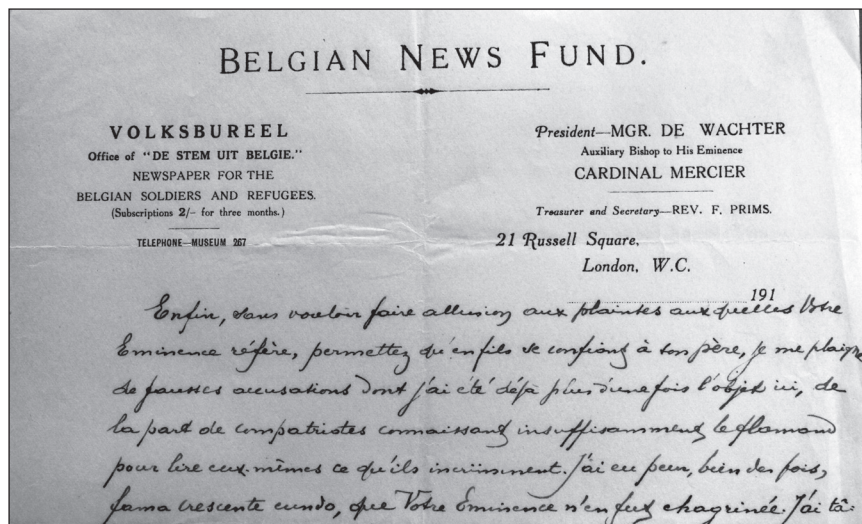 BELGIAN NEWS FUND.
VOLKSBUREEL
Office of "DE STEM UIT BELGIE."
NEWSPAPER FOR THE
BELGIAN SOLDIERS AND REFUGEES.
(Subscriptions 2/- for three months.)
TELEPHONE—MUSEUM 267
President—MGR. DE WACHTER
Auxiliary Bishop to His Eminence
CARDINAL MERCIER
Treasurer and Secretary—REV. F. PRIMS.
21 Russell Square,
London, W.C.
191
Enfin, sans vouloir faire allusion aux plaintes auxquelles Votre
Eminence réfère, permettez qu'en fils se confiant à son père, je me plaigne
de fausses accusations dont j'ai été déjà plus d'une fois l'objet ici, de
la part de compatriotes connaissant insuffisamment le flamand
pour lire eux-mêmes ce qu'ils incriminent. J'ai eu peur, bien des fois,
fama crescente eundo, que Votre Eminence n'en fut chagrinée. J'ai tâ-